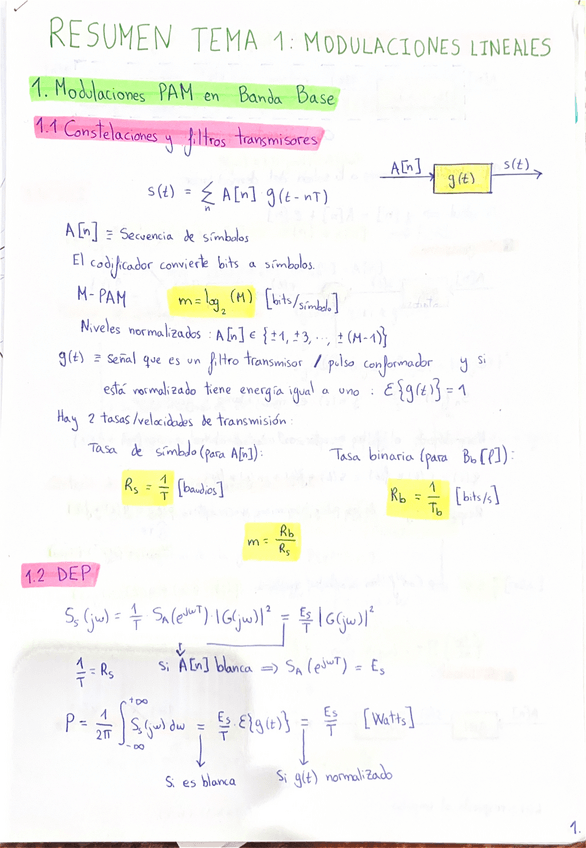 RESUMEN TEMA 1: MODULACIONES LINEALES
1. Modulaciones PAM en Banda Base
1.1 Constelaciones y filtros transmisores
A[n] g(t) s(t)
s(t) = Σ_n A[n] g(t-nT)
A[n] ≡ Secuencia de símbolos
El codificador convierte bits a símbolos.
M-PAM m = log₂ (M) [bits/símbolo]
Niveles normalizados : A[n] ∈ {±1, ±3, ..., ±(M-1)}
g(t) ≡ señal que es un filtro transmisor / pulso conformador y si
está normalizado tiene energía igual a uno : Ɛ{g(t)} = 1
Hay 2 tasas/velocidades de transmisión:
Tasa de símbolo (para A[n]): Tasa binaria (para B_b[ℓ]):
R_s = 1/T [baudios] R_b = 1/T_b [bits/s]
m = R_b/R_s
1.2 DEP
S_s(jω) = 1/T S_A(e^{jωT})·|G(jω)|² = E_s/T |G(jω)|²
1/T = R_s si A[n] blanca ⇒ S_A(e^{jωT}) = E_s
P = 1/2π ∫_{-∞}^{+∞} S_s(jω) dω = E_s/T · Ɛ{g(t)} = E_s/T [Watts]
Si es blanca Si g(t) normalizado
1.